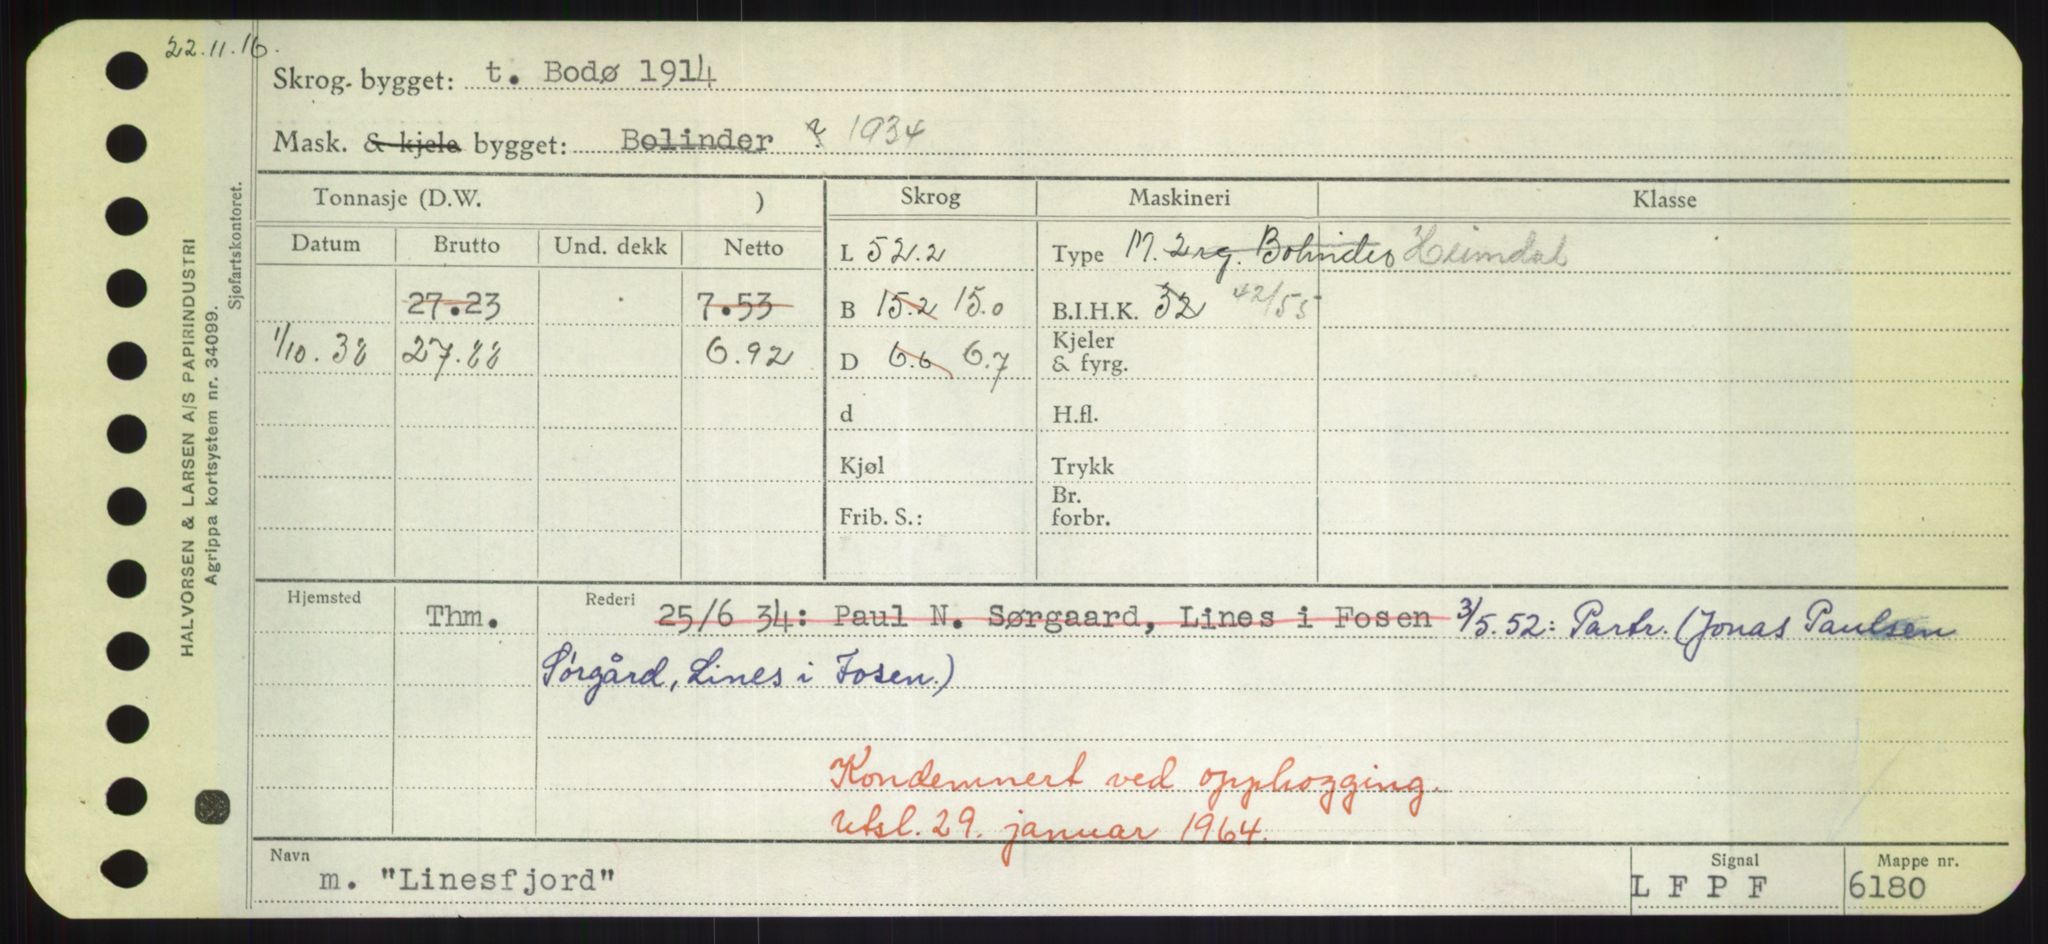 22.11.16.
Skrog. bygget: t. Bodø 1914
Mask. & kjele bygget: Bolinder ? 1934
Tonnasje (D.W. ) Skrog Maskineri Klasse
Datum Brutto Und. dekk Netto
L 52.2 Type M. 2 Bolinder Heimdal
27.23 7.53 B 15.2 15.0 B.I.H.K. 32 42/55
1/10.38 27.88 6.92 D 6.6 6.7 Kjeler & fyrg.
d H.fl.
Kjøl Trykk
Frib. S.: Br. forbr.
Hjemsted Thm. Rederi 25/6 34: Paul N. Sørgaard, Lines i Fosen 3/5.52: Partr. (Jonas Paulsen
Sørgård, Lines i Fosen.)
Kondemnert ved opphogging.
Utsl. 29. januar 1964.
Navn Signal Mappe nr.
m. "Linesfjord" L F P F 6180
HALVORSEN & LARSEN A/S PAPIRINDUSTRI
Agrippa kortsystem nr. 34099.
Sjøfartskontoret.